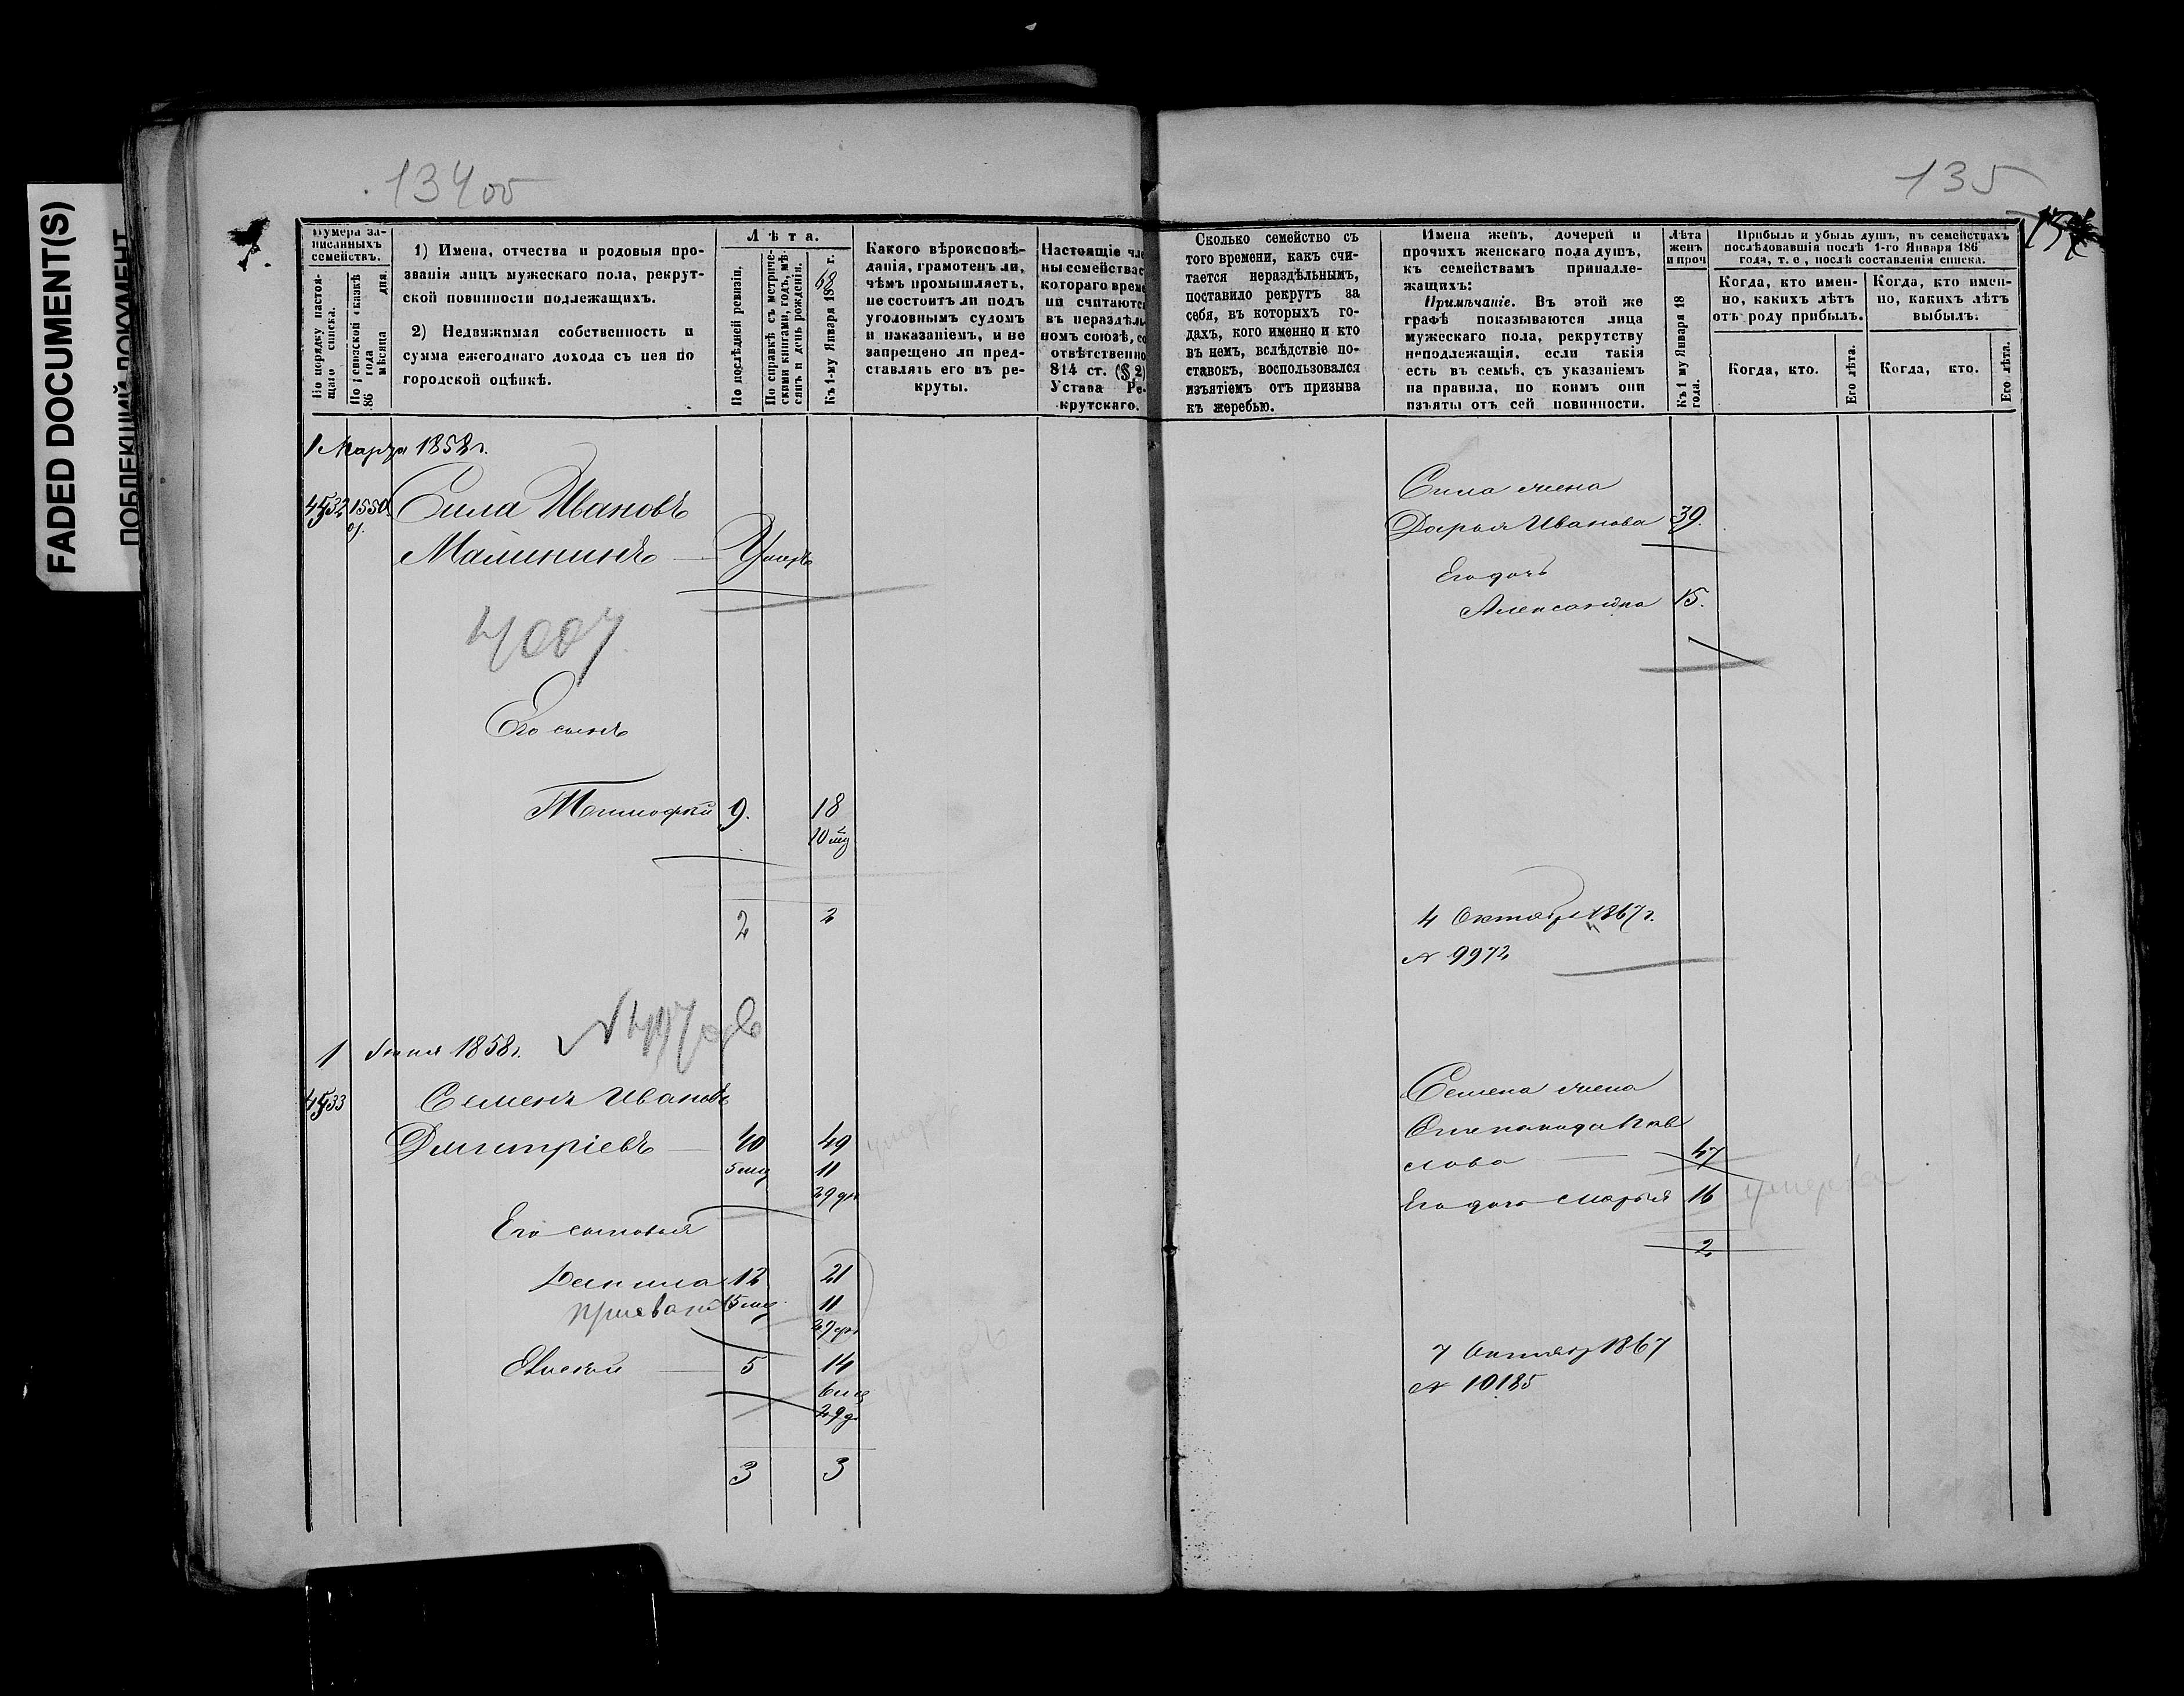 FADED DOCUMENT(S)
134 об
135
Нумера за-
писанныхъ
семействъ.
По порядку настоя-
щаго списка.
По ревизской сказкѣ
186 года
мѣсяца дня.
1) Имена, отчества и родовыя про-
званія лицъ мужескаго пола, рекрут-
ской повинности подлежащихъ.
2) Недвижимая собственность и
сумма ежегоднаго дохода съ нея по
городской оцѣнкѣ.
Лѣта.
По послѣдней ревизіи.
По справкѣ съ метриче-
скими книгами, годъ, мѣ-
сяцъ и день рожденія.
Къ 1-му Января 1868 г.
Какого вѣроисповѣ-
данія, грамотенъ ли,
чѣмъ промышляетъ,
не состоитъ ли подъ
уголовнымъ судомъ
и наказаніемъ, и не
запрещено ли пред-
ставлять его въ ре-
круты.
Настоящіе чле
ны семейства с
котораго време
ни считаются
въ нераздѣль
номъ союзѣ, со
отвѣтственно
814 ст. (§ 2)
Устава Ре-
крутскаго.
Сколько семейство съ
того времени, какъ счи-
тается нераздѣльнымъ,
поставило рекрутъ за
себя, въ которыхъ го-
дахъ, кого именно и кто
въ немъ, вслѣдствіе по-
ставокъ, воспользовался
изъятіемъ отъ призыва
къ жеребью.
Имена женъ, дочерей и
прочихъ женскаго пола душъ,
къ семействамъ принадле-
жащихъ:
Примѣчаніе. Въ этой же
графѣ показываются лица
мужескаго пола, рекрутству
неподлежащія, если такія
есть въ семьѣ, съ указаніемъ
на правила, по коимъ они
изъяты отъ сей повинности.
Лѣта
женъ
и проч
Къ 1 му Января 18
года.
Прибыль и убыль душъ, въ семействахъ
послѣдовавшія послѣ 1-го Января 186
года, т. е., послѣ составленія списка.
Когда, кто имен-
но, какихъ лѣтъ
отъ роду прибылъ.
Когда, кто имен-
но, какихъ лѣтъ
выбылъ.
Когда, кто.
Его лѣта.
Когда, кто.
Его лѣта.
1 Марта 1858 г.
4532 1550 Сила Ивановъ
Малининъ — Умеръ
4007
Его сынъ
Тимофей 9. 18
10 мц
2 2
Сила жена
Дарья Иванова 39.
Его дочь
Александра 15.
4 Октября 1867 г.
№ 9972
1 Іюня 1858 г.
4533 Семенъ Ивановъ
Дмитріевъ — 40 49
5 мц 11
29 дн
Его сыновья
Данила 12 21
5 мц 11
29 дн
Евсей — 5 14
6 мц
29 дн
3 3
умеръ
умеръ
Семена жена
Степанида Пав
лова — 47
Его дочь Марья 16
умерла
2
7 Октября 1867
№ 10185